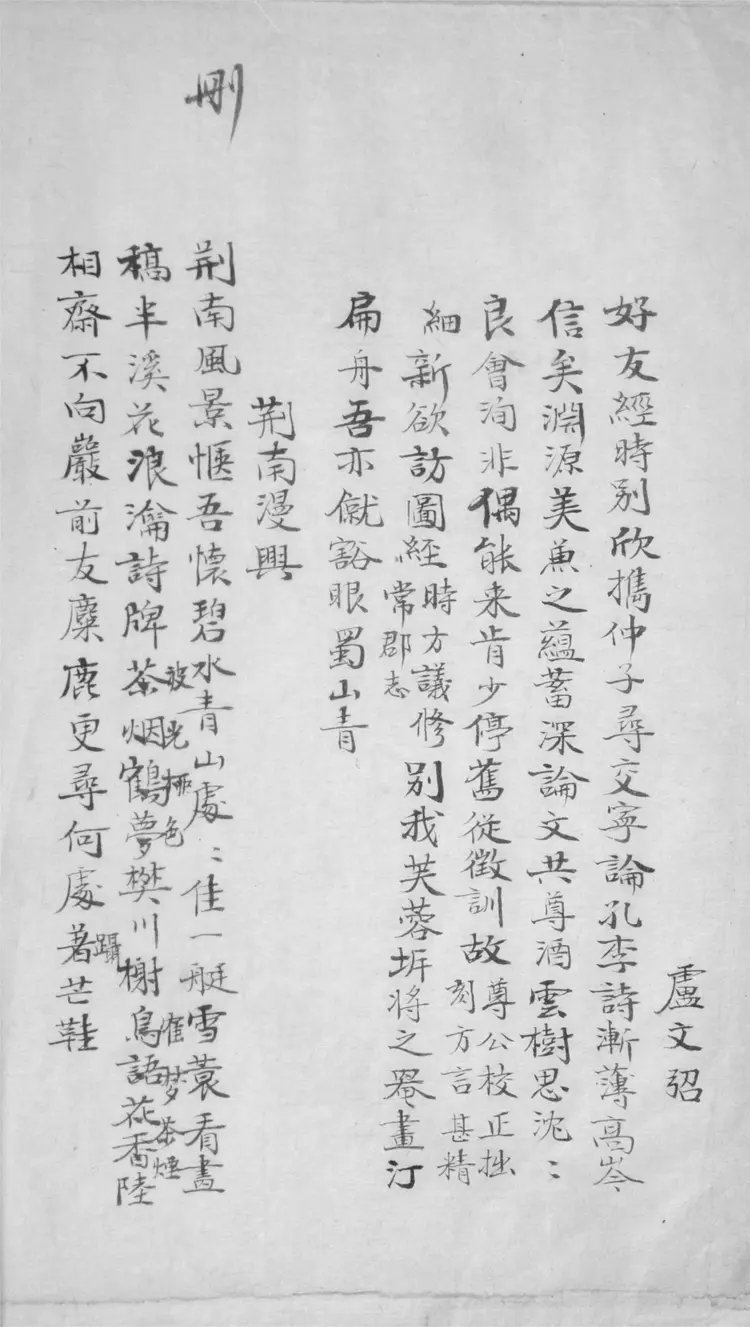 盧文弨
好友經時别欣攜仲子尋交寧論孔李詩漸薄高岑
信矣淵源美兼之蘊蓄深論文共尊酒雲樹思沈〻
良會洵非偶能来肯少停舊從徵訓故
尊公校正拙
刻方言甚精
細
新欲訪圖經
時方議修
常郡志
别我芙蓉圻將之罨畫汀
扁舟吾亦僦豁眼蜀山青
荆南漫興
刪
荆南風景愜吾懷碧水青山處〻佳一艇雪蓑看畫
光
色
夢茶煙
稿半溪花浪瀹詩牌茶烟鶴夢樊川榭鳥語花香陸
躡
相齋不向巖前友麋鹿更尋何處著芒鞋